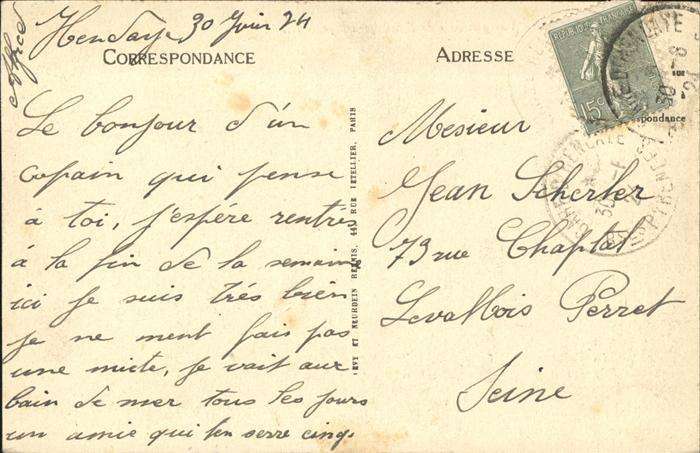 Hendaye 30 Juin 24
CORRESPONDANCE
Le bonjour d'un
copain qui pense
à toi, j'espére rentré
à la fin de la semaine
ici je suis trés bien
je ne ment fais pas
une miete, je vait aux
bain de mer tous les jours
un amie qui ten serre cinq.
LEVY ET NEURDEIN REUNIS, 44, RUE LETELLIER, PARIS
ADRESSE
RÉPUBLIQUE FRANÇAISE
15c
Mesieur
Jean Scherler
73 rue Chaptal
Levallois Perret
Seine